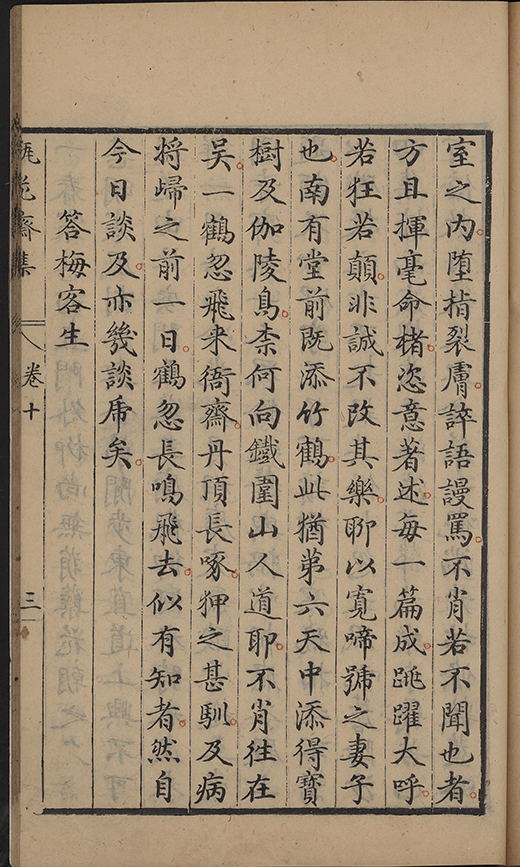 室之内墮指裂膚誶語謾罵不肖若不聞也者
方且揮毫命楮恣意著述每一篇成跳躍大呼
若狂若顛非誠不改其樂聊以寛啼號之妻子
也南有堂前既添竹鶴此猶弟六天中添得寶
樹及伽陵鳥柰何向鐵圍山人道耶不肖徃在
吴一鶴忽飛來衙齋丹頂長啄狎之甚馴及病
將歸之前一日鶴忽長鳴飛去似有知者然自
今日談及亦幾談虎矣
答梅客生
瓶花齋集 卷十 三